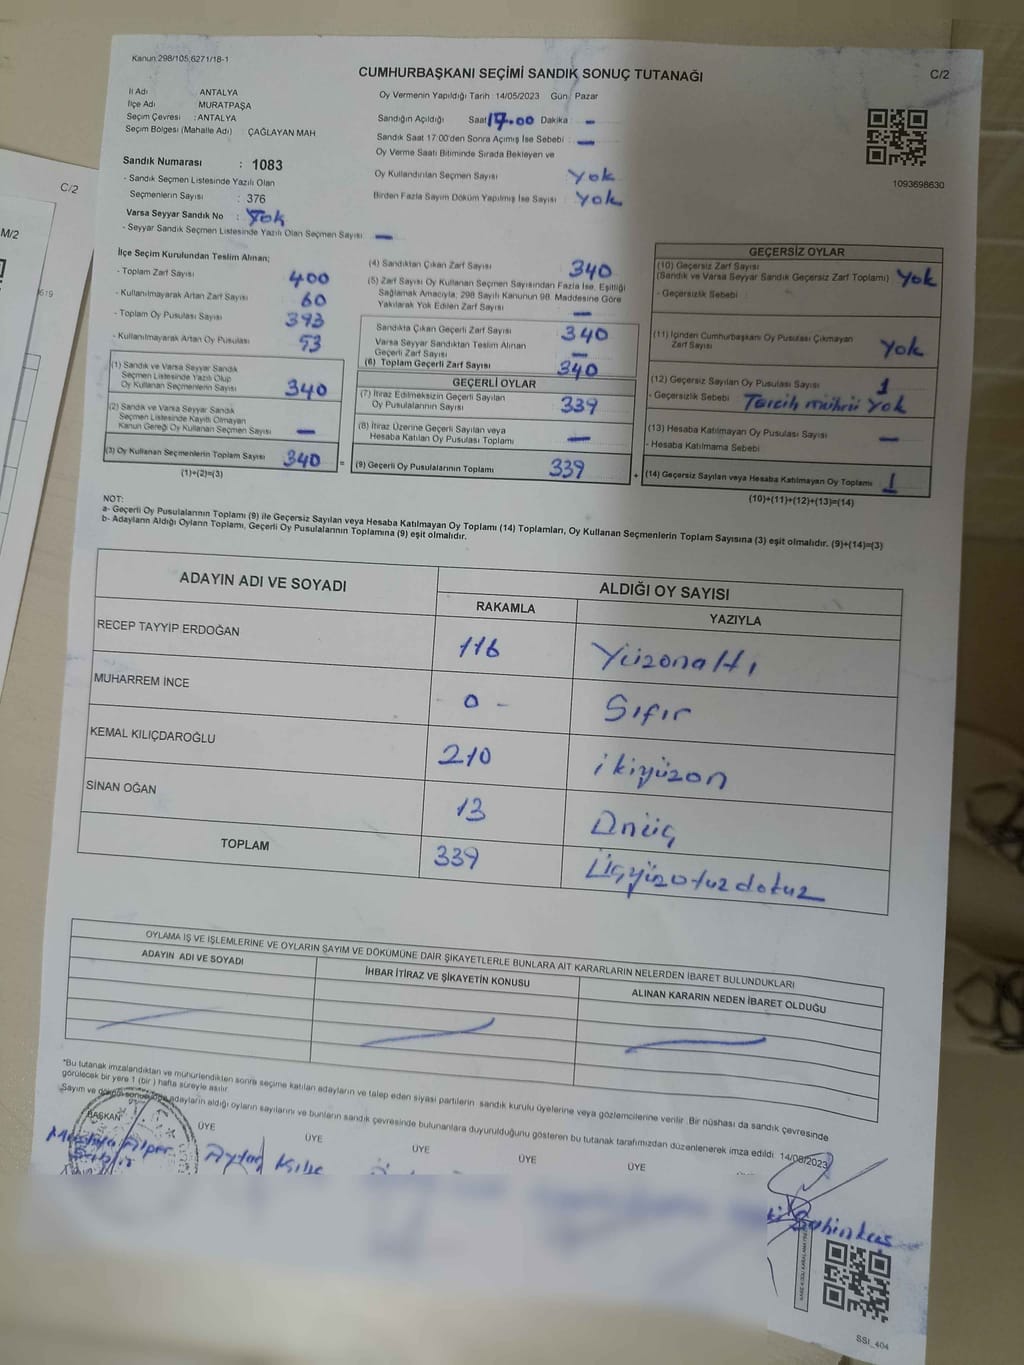 Kanun:298/105,6271/18-1
CUMHURBAŞKANI SEÇİMİ SANDIK SONUÇ TUTANAĞI
C/2
İl Adı ANTALYA
İlçe Adı MURATPAŞA
Seçim Çevresi : ANTALYA
Seçim Bölgesi (Mahalle Adı) : ÇAĞLAYAN MAH
Oy Vermenin Yapıldığı Tarih 14/05/2023 Gün: Pazar
Sandığın Açıldığı Saat 17.00 Dakika -
Sandık Saat 17:00'den Sonra Açımış İse Sebebi : -
Oy Verme Saati Bitiminde Sırada Bekleyen ve
Oy Kullandırılan Seçmen Sayısı : Yok
Birden Fazla Sayım Döküm Yapılmış İse Sayısı : Yok
1093698630
Sandık Numarası : 1083
- Sandık Seçmen Listesinde Yazılı Olan
Seçmenlerin Sayısı : 376
Varsa Seyyar Sandık No : Yok
- Seyyar Sandık Seçmen Listesinde Yazılı Olan Seçmen Sayısı : -
İlçe Seçim Kurulundan Teslim Alınan;
- Toplam Zarf Sayısı 400
- Kullanılmayarak Artan Zarf Sayısı 60
- Toplam Oy Pusulası Sayısı 393
- Kullanılmayarak Artan Oy Pusulası 53
(1) Sandık ve Varsa Seyyar Sandık
Seçmen Listesinde Yazılı Olup
Oy Kullanan Seçmenlerin Sayısı 340
(2) Sandık ve Varsa Seyyar Sandık
Seçmen Listesinde Kayıtlı Olmayan
Kanun Gereği Oy Kullanan Seçmen Sayısı -
(3) Oy Kullanan Seçmenlerin Toplam Sayısı 340
(1)+(2)=(3)
=
(4) Sandıktan Çıkan Zarf Sayısı 340
(5) Zarf Sayısı Oy Kullanan Seçmen Sayısından Fazla İse, Eşitliği
Sağlamak Amacıyla; 298 Sayılı Kanunun 98. Maddesine Göre
Yakılarak Yok Edilen Zarf Sayısı -
Sandıkta Çıkan Geçerli Zarf Sayısı 340
Varsa Seyyar Sandıktan Teslim Alınan
Geçerli Zarf Sayısı -
(6) Toplam Geçerli Zarf Sayısı 340
GEÇERLİ OYLAR
(7) İtiraz Edilmeksizin Geçerli Sayılan
Oy Pusulalarının Sayısı 339
(8) İtiraz Üzerine Geçerli Sayılan veya
Hesaba Katılan Oy Pusulası Toplamı -
(9) Geçerli Oy Pusulalarının Toplamı 339
+
GEÇERSİZ OYLAR
(10) Geçersiz Zarf Sayısı
(Sandık ve Varsa Seyyar Sandık Geçersiz Zarf Toplamı) Yok
- Geçersizlik Sebebi :
(11) İçinden Cumhurbaşkanı Oy Pusulası Çıkmayan
Zarf Sayısı Yok
(12) Geçersiz Sayılan Oy Pusulası Sayısı 1
- Geçersizlik Sebebi : Tercih mührü Yok
(13) Hesaba Katılmayan Oy Pusulası Sayısı -
- Hesaba Katılmama Sebebi
(14) Geçersiz Sayılan veya Hesaba Katılmayan Oy Toplamı 1
(10)+(11)+(12)+(13)=(14)
NOT:
a- Geçerli Oy Pusulalarının Toplamı (9) ile Geçersiz Sayılan veya Hesaba Katılmayan Oy Toplamı (14) Toplamları, Oy Kullanan Seçmenlerin Toplam Sayısına (3) eşit olmalıdır. (9)+(14)=(3)
b- Adayların Aldığı Oyların Toplamı, Geçerli Oy Pusulalarının Toplamına (9) eşit olmalıdır.
ADAYIN ADI VE SOYADI
ALDIĞI OY SAYISI
RAKAMLA
YAZIYLA
RECEP TAYYİP ERDOĞAN 116 Yüzonaltı
MUHARREM İNCE - 0 - Sıfır
KEMAL KILIÇDAROĞLU 210 ikiyüzon
SİNAN OĞAN 13 Onüç
TOPLAM 339 Üçyüzotuzdokuz
OYLAMA İŞ VE İŞLEMLERİNE VE OYLARIN SAYIM VE DÖKÜMÜNE DAİR ŞİKAYETLERLE BUNLARA AİT KARARLARIN NELERDEN İBARET BULUNDUKLARI
ADAYIN ADI VE SOYADI
İHBAR İTİRAZ VE ŞİKAYETİN KONUSU
ALINAN KARARIN NEDEN İBARET OLDUĞU
*Bu tutanak imzalandıktan ve mühürlendikten sonra seçime katılan adayların ve talep eden siyasi partilerin sandık kurulu üyelerine veya gözlemcilerine verilir. Bir nüshası da sandık çevresinde
görülecek bir yere 1 (bir) hafta süreyle asılır.
Sayım ve döküm sonucunda adayların aldığı oyların sayılarını ve bunların sandık çevresinde bulunanlara duyurulduğunu gösteren bu tutanak tarafımızdan düzenlenerek imza edildi. 14/05/2023
BAŞKAN
ÜYE
ÜYE
ÜYE
ÜYE
ÜYE
SSI_404
C/2
M/2